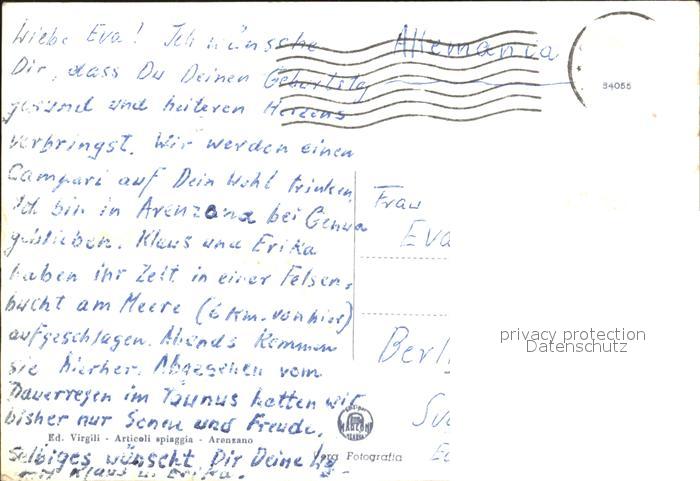 Liebe Eva! Ich wünsche
Dir, dass Du Deinen Geburtstag
gesund und heiteren Herzens
verbringst. Wir werden einen
Campari auf Dein Wohl trinken.
Ich bin in Arenzano bei Genua
geblieben. Klaus und Erika
haben ihr Zelt in einer Felsen-
bucht am Meere (6 Km. von hier)
aufgeschlagen. Abends kommen
sie hierher. Abgesehen vom
Dauerregen im Taunus hatten wir
bisher nur Sonne und Freude.
Selbiges wünscht Dir Deine
mit Klaus u. Erika.
Ed. Virgili - Articoli spiaggia - Arenzano
Vera Fotografia
Allemania
54055
Frau
Eva
Berl
privacy protection
Datenschutz